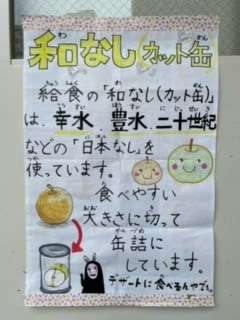 和なし カット缶
給食の「和なし(カット缶)」
は、幸水、豊水、二十世紀
などの「日本なし」を
使っています。
食べやすい
大きさに切って
缶詰に
しています。
デザートに食べるんやでぃ。